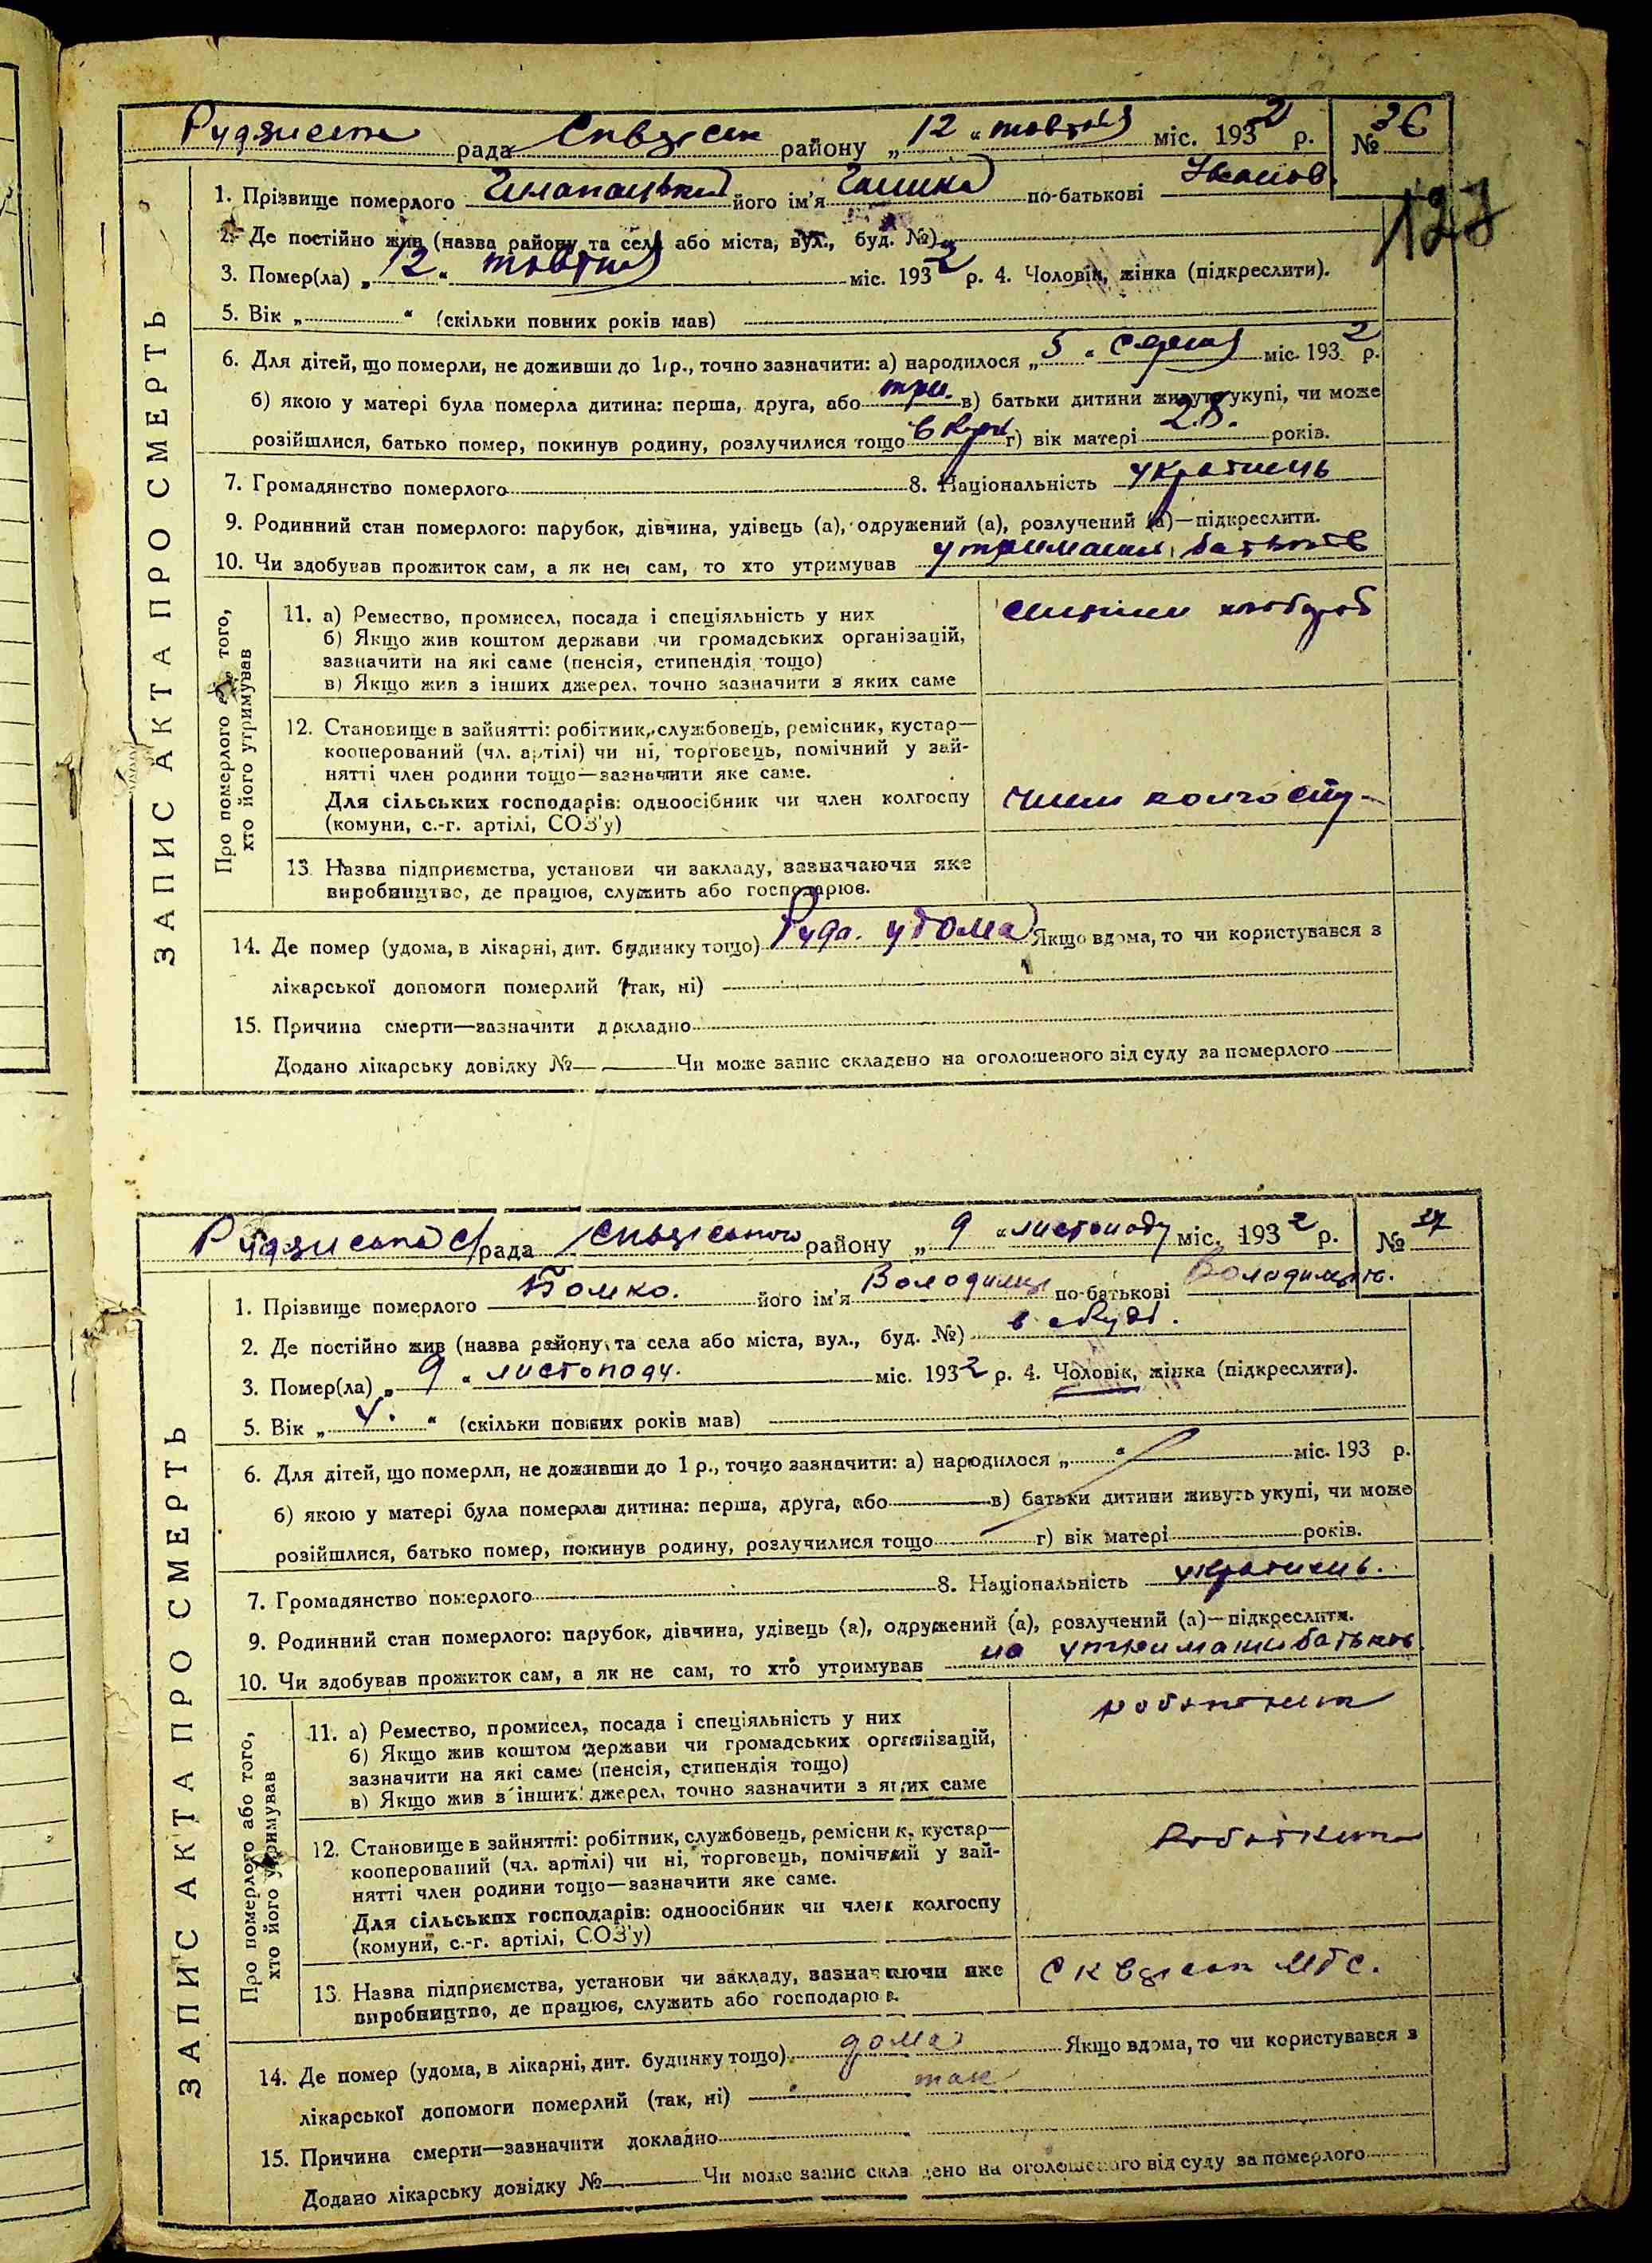 рада району „ 12 “ міс. 1932 р. № 36
127
1. Прізвище померлого його ім'я по-батькові
2. Де постійно жив (назва району та села або міста, вул., буд. №)
3. Помер(ла) „ 12 “ міс. 1932 р. 4. Чоловік, жінка (підкреслити).
5. Вік „ “ (скільки повних років мав)
6. Для дітей, що померли, не доживши до 1 р., точно зазначити: а) народилося „ 5 “ серпня міс. 1932 р.
б) якою у матері була померла дитина: перша, друга, або в) батьки дитини живуть укупі, чи може
розійшлися, батько помер, покинув родину, розлучилися тощо г) вік матері 28. років.
7. Громадянство померлого 8. Національність українець
9. Родинний стан померлого: парубок, дівчина, удівець (а), одружений (а), розлучений (а)—підкреслити.
10. Чи здобував прожиток сам, а як не сам, то хто утримував
ЗАПИС АКТА ПРО СМЕРТЬ
Про померлого або того,
хто його утримував
11. а) Ремество, промисел, посада і спеціяльність у них
б) Якщо жив коштом держави чи громадських організацій,
зазначити на які саме (пенсія, стипендія тощо)
в) Якщо жив з інших джерел, точно зазначити з яких саме
12. Становище в зайнятті: робітник, службовець, ремісник, кустар—
кооперований (чл. артілі) чи ні, торговець, помічний у зай-
нятті член родини тощо—зазначити яке саме.
Для сільських господарів: одноосібник чи член колгоспу
(комуни, с.-г. артілі, СОЗ'у)
член колгоспу
13. Назва підприємства, установи чи закладу, зазначаючи яке
виробництво, де працює, служить або господарює.
14. Де помер (удома, в лікарні, дит. будинку тощо) Руда. удома Якщо вдома, то чи користувався з
лікарської допомоги померлий (так, ні)
15. Причина смерти—зазначити докладно
Додано лікарську довідку № Чи може запис складено на оголошеного від суду за померлого
рада району „ 9 “ листопаду міс. 1932 р. № 37
1. Прізвище померлого його ім'я Володимир по-батькові
2. Де постійно жив (назва району та села або міста, вул., буд. №)
3. Помер(ла) „ 9 “ листопаду. міс. 1932 р. 4. Чоловік, жінка (підкреслити).
5. Вік „ “ (скільки повних років мав)
6. Для дітей, що померли, не доживши до 1 р., точно зазначити: а) народилося „ “ міс. 193 р.
б) якою у матері була померла дитина: перша, друга, або в) батьки дитини живуть укупі, чи може
розійшлися, батько помер, покинув родину, розлучилися тощо г) вік матері років.
7. Громадянство померлого 8. Національність українець.
9. Родинний стан померлого: парубок, дівчина, удівець (а), одружений (а), розлучений (а)—підкреслити.
10. Чи здобував прожиток сам, а як не сам, то хто утримував на
ЗАПИС АКТА ПРО СМЕРТЬ
Про померлого або того,
хто його утримував
11. а) Ремество, промисел, посада і спеціяльність у них
б) Якщо жив коштом держави чи громадських організацій,
зазначити на які саме (пенсія, стипендія тощо)
в) Якщо жив з інших джерел, точно зазначити з яких саме
12. Становище в зайнятті: робітник, службовець, ремісник, кустар—
кооперований (чл. артілі) чи ні, торговець, помічний у зай-
нятті член родини тощо—зазначити яке саме.
Для сільських господарів: одноосібник чи член колгоспу
(комуни, с.-г. артілі, СОЗ'у)
13. Назва підприємства, установи чи закладу, зазначаючи яке
виробництво, де працює, служить або господарює.
МТС.
14. Де помер (удома, в лікарні, дит. будинку тощо) дома Якщо вдома, то чи користувався з
лікарської допомоги померлий (так, ні) так
15. Причина смерти—зазначити докладно
Додано лікарську довідку № Чи може запис складено на оголошеного від суду за померлого